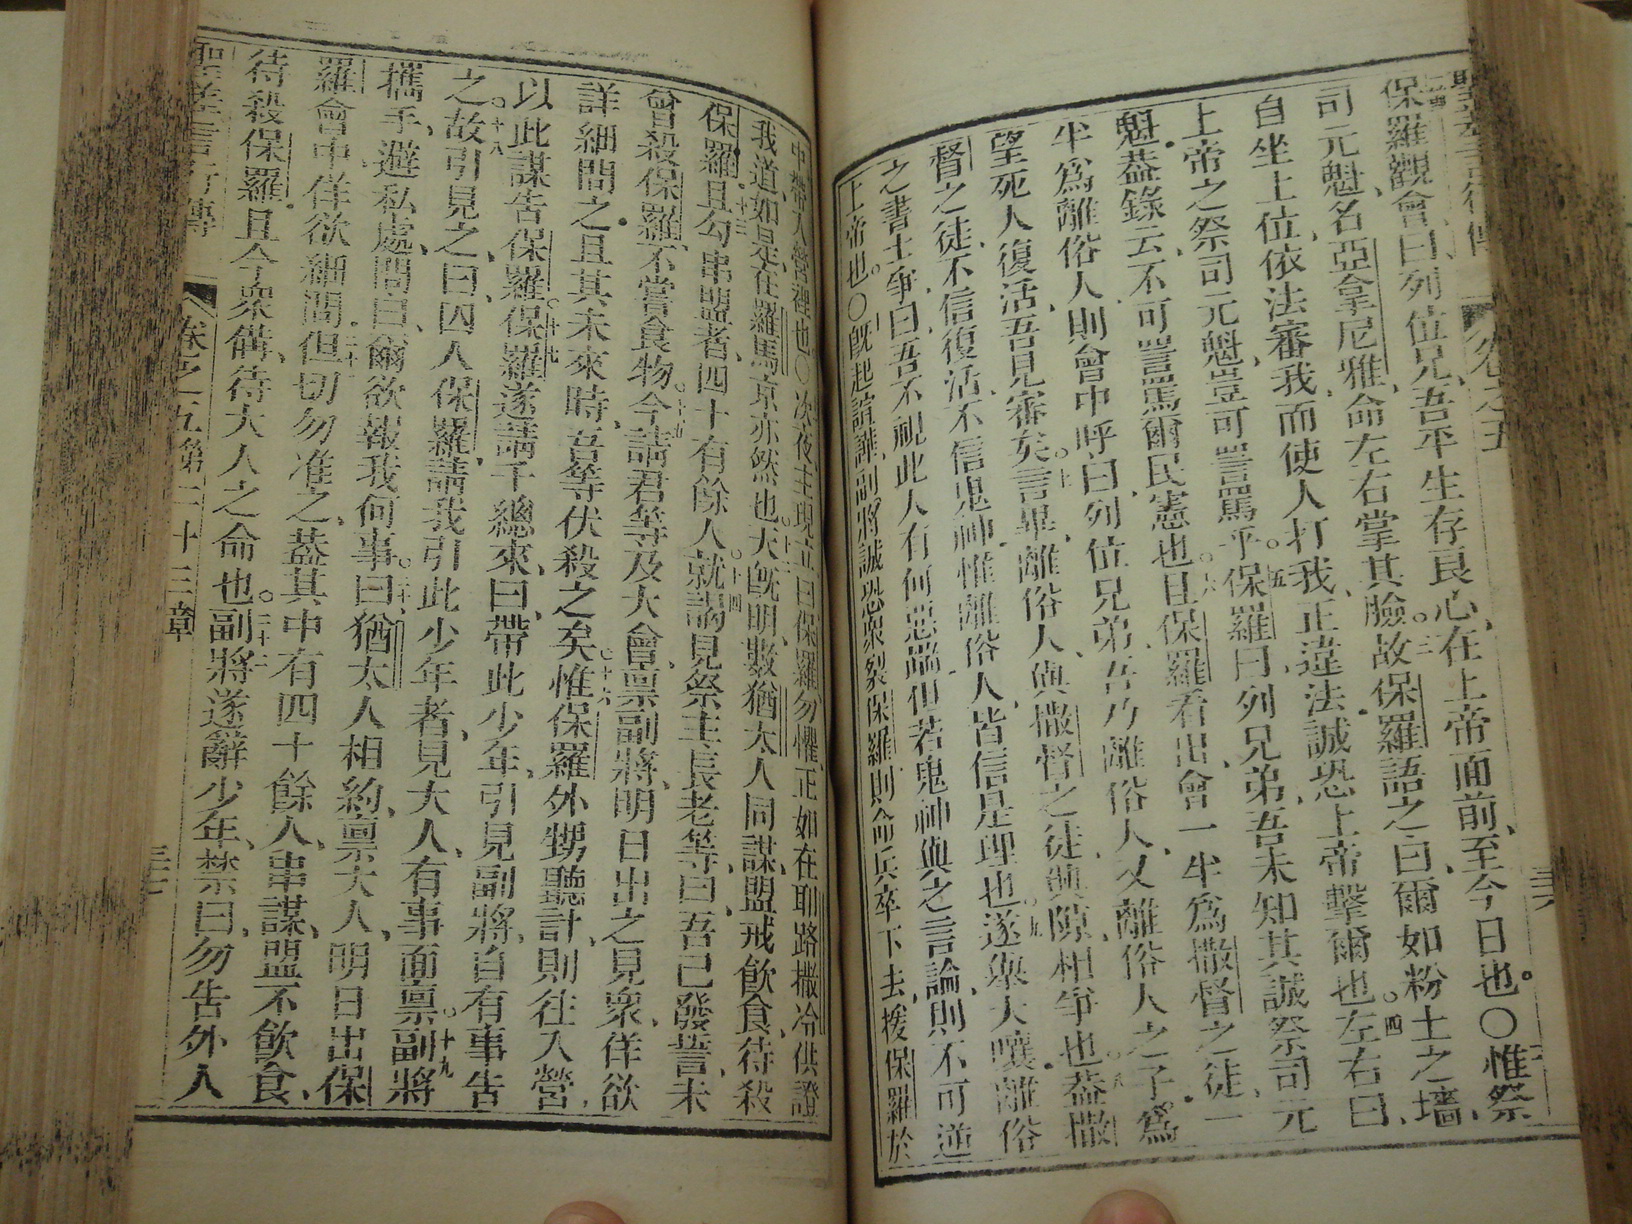 聖差言行傳 卷之五 三十六
保羅觀會曰列位兄吾平生存良心在上帝面前至今日也〇惟祭
司元魁名亞拿尼雅命左右掌其臉故保羅語之曰爾如粉土之墻
自坐上位依法審我而使人打我正違法誠恐上帝擊爾也左右曰
上帝之祭司元魁豈可詈罵乎保羅曰列兄弟吾未知其誠祭司元
魁蓋錄云不可詈罵爾民憲也且保羅看出會一半為撒督之徒一
半為離俗人則會中呼曰列位兄弟吾乃離俗人又離俗人之子為
望死人復活吾見審矣言畢離俗人與撒督之徒與隙相爭也蓋撒
督之徒不信復活不信鬼神惟離俗人皆信是理也遂與大嚷離俗
之書士爭曰吾不視此人有何惡端但若鬼神與之言論則不可逆
上帝也〇既起諠譁副將誠恐眾裂保羅則命兵卒下去援保羅於
中帶入營裡也〇次夜主現立曰保羅勿懼正如在耶路撒冷供證
我道如是在羅馬京亦然也天既明數猶太人同謀盟戒飲食待殺
保羅且勾串盟者四十有餘人就謁見祭主長老等曰吾已發誓未
曾殺保羅不嘗食物今請君等及大會禀副將明日出之見眾佯欲
詳細問之且其未來時吾等伏殺之矣惟保羅外甥聽計則往入營
以此謀告保羅保羅遂請千總來曰帶此少年引見副將自有事告
之故引見之曰囚人保羅請我引此少年者見大人有事面禀副將
攜手避私處問曰爾欲報我何事曰猶太人相約禀大人明日出保
羅會中佯欲細問但切勿准之蓋其中有四十餘人串謀盟不飲食
待殺保羅且今眾備待大人之命也副將遂辭少年禁曰勿告外人
聖差言行傳 卷之五第二十三章